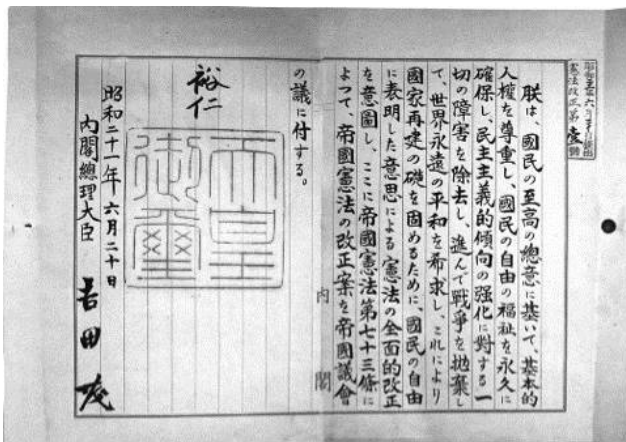 憲法改正第壹號
朕は、國民の至高の總意に基いて、基本的
人權を尊重し、國民の自由の福祉を永久に
確保し、民主主義的傾向の强化に對する一
切の障害を除去し、進んで戰爭を抛棄し
て、世界永遠の平和を希求し、これにより
國家再建の礎を固めるために、國民の自由
に表明した意思による憲法の全面的改正
を意圖し、ここに帝國憲法第七十三條に
よつて、帝國憲法の改正案を帝國議會
の議に付する。
内閣
裕仁
天皇
御璽
昭和二十一年六月二十日
内閣總理大臣 吉田茂